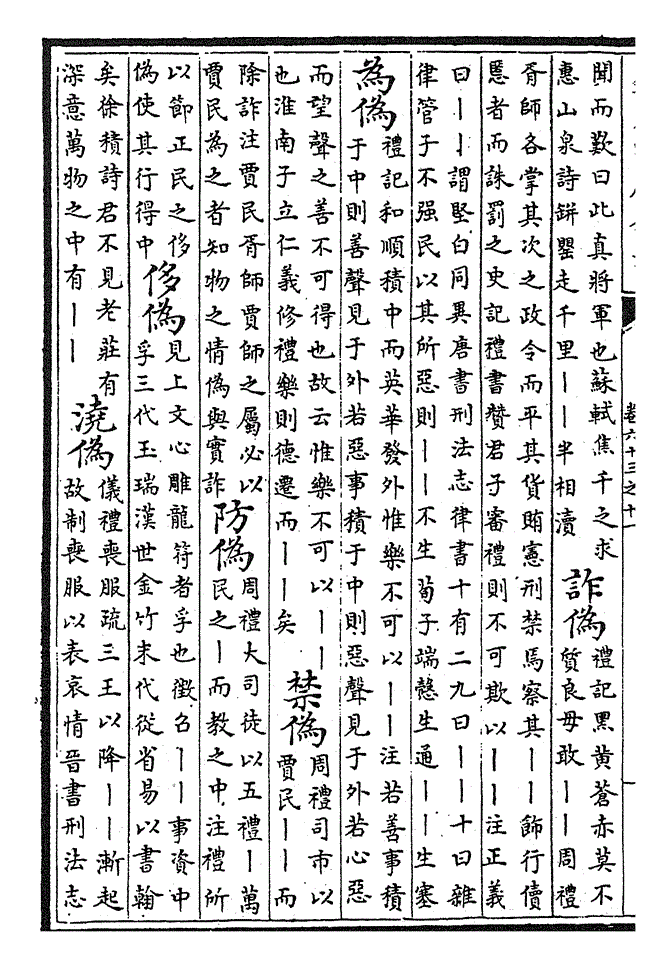 聞而歎曰此真將軍也蘇軾焦千之求
惠山泉詩缾罌走千里丨丨半相瀆 詐偽 禮記黑黄蒼赤莫不
質良毋敢丨丨周禮
胥師各掌其次之政令而平其貨賄憲刑禁焉察其丨丨飾行儥
慝者而誅罰之史記禮書贊君子審禮則不可欺以丨丨注正義
曰丨丨謂堅白同異唐書刑法志律書十有二九曰丨丨十曰雜
律管子不强民以其所惡則丨丨不生荀子端慤生通丨丨生塞
為偽 禮記和順積中而英華發外惟樂不可以丨丨注若善事積
于中則善聲見于外若惡事積于中則惡聲見于外若心惡
而望聲之善不可得也故云惟樂不可以丨丨
也淮南子立仁義修禮樂則德遷而丨丨矣 禁偽 周禮司市以
賈民丨丨而
除詐注賈民胥師賈師之屬必以
賈民為之者知物之情偽與實詐 防偽 周禮大司徒以五禮丨萬
民之丨而教之中注禮所
以節正民之侈
偽使其行得中 侈偽 見上文心雕龍符者孚也徵召丨丨事資中
孚三代玉瑞漢世金竹末代從省易以書翰
矣徐積詩君不見老莊有
深意萬物之中有丨丨 澆偽 儀禮喪服疏三王以降丨丨漸起
故制喪服以表哀情晉書刑法志
卷六十三之十一